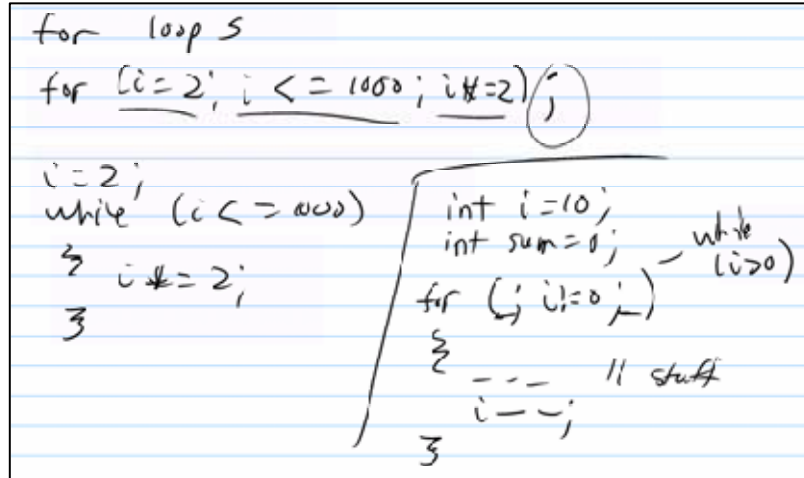 for loops
for (i=2; i <= 1000; i*=2);
i=2;
while (i <= 1000)
{ i*=2;
}
int i=10;
int sum=0;
for (; i!=0; )
while
(i>0)
{
--- // stuff
i--;
}